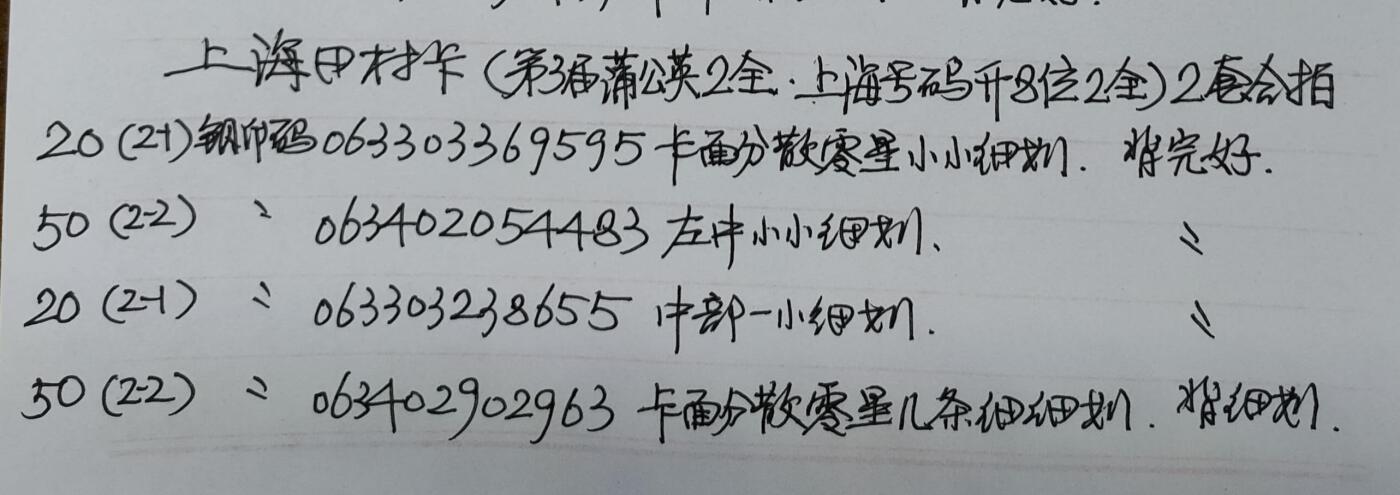 上海田村卡(第3届蒲公英2全·上海号码升8位2全)2套合拍
20(2-1)钢印码063303369595卡面分散零星小小细划.背完好.
50(2-2) 〃 063402054483左中小小细划、 〃
20(2-1) 〃 063303238655中部一小细划. 〃
50(2-2) 〃 063402902963卡面分散零星几条细细划.背细划.